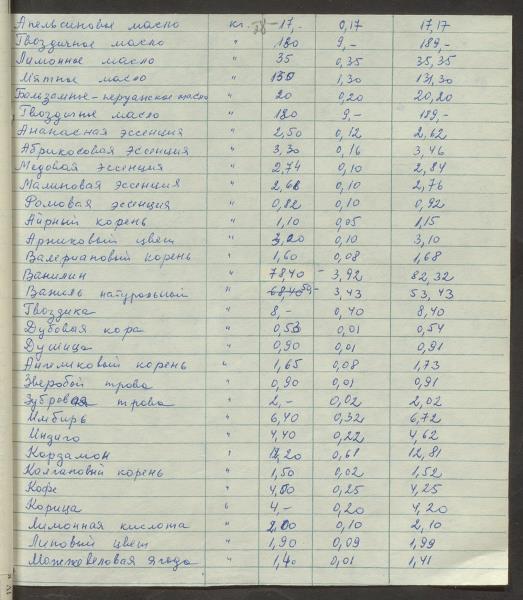 Апельсиновое масло кг. 17,- 0,17 17,17
Гвоздичное масло " 180 9,- 189,-
Лимонное масло " 35 0,35 35,35
Мятное масло " 130 1,30 131,30
Бользамне-перуанское масло " 20 0,20 20,20
Гвоздичное масло " 180 9,- 189,-
Ананасная эссенция " 2,50 0,12 2,62
Абрикосовая эссенция " 3,30 0,16 3,46
Медовая эссенция " 2,74 0,10 2,84
Малиновая эссенция " 2,66 0,10 2,76
Ромовая эссенция " 0,82 0,10 0,92
Аирный корень " 1,10 0,05 1,15
Арниковый цвет " 3,00 0,10 3,10
Валериановый корень " 1,60 0,08 1,68
Ванилин " 7840 - 3,92 82,32
Ваниль натуральный " 50- 3,43 53,43
Гвоздика " 8,- 0,40 8,40
Дубовая кора " 0,53 0,01 0,54
Душица " 0,90 0,01 0,91
Ангеликовый корень " 1,65 0,08 1,73
Зверобой трова " 0,90 0,01 0,91
Зубровая трова " 2,- 0,02 2,02
Имбирь " 6,40 0,32 6,72
Индиго " 4,40 0,22 4,62
Кордамон " 12,20 0,61 12,81
Колгановый корень " 1,50 0,02 1,52
Кофе " 4,00 0,25 4,25
Корица " 4,- 0,20 4,20
Лимонная кислота " 2,00 0,10 2,10
Липовый цвет " 1,90 0,09 1,99
Можжевеловая ягода " 1,40 0,01 1,41